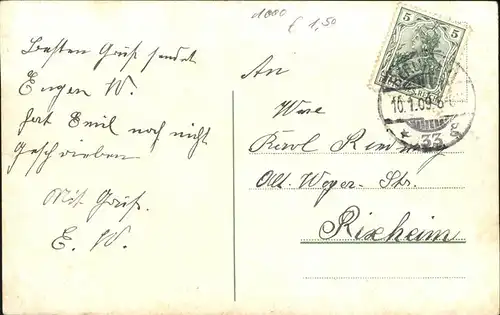 1000
€ 1,50
Besten Gruß sendet
Eugen W.
hat Emil noch nicht
geschrieben
Mit Gruß.
E. W.
5 5
10.1.09. 6-
* 33 g
An
Karl
Str.
Rixheim